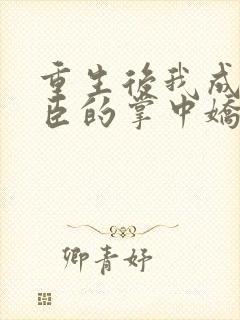 重生後我成
臣的掌中嬌
卿青妤